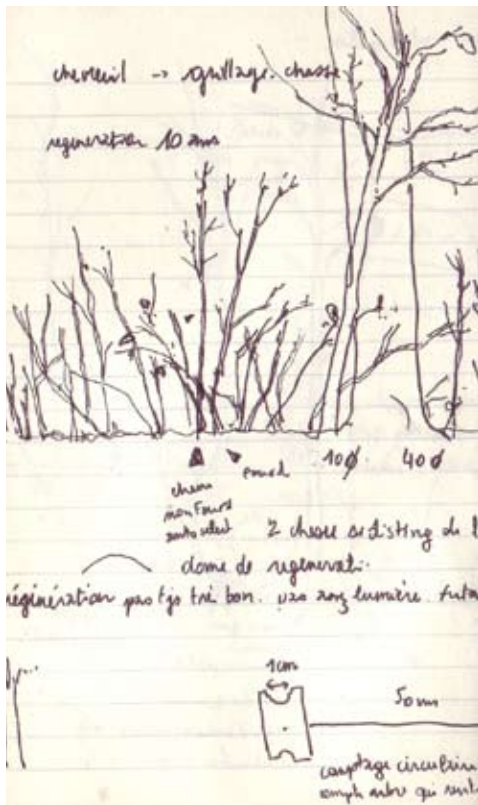 chevreuil → grillage. chasse
regeneration 10 ans
10ø 40ø
chene
non Fourd
fourd
2 chene se disting de l
dome de regenerati.
régénération pas tjs très bon. pas assez lumière. futa
1cm
50 cm
comptage circulaire
compte arbre qui sont